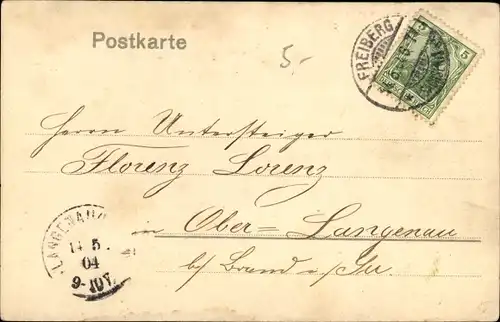 Postkarte
5-
FREIBERG
5
Herrn Untersteiger
Florenz Lorenz
in Ober=Langenau
b/ Brand i/Sa.
LANGENAU
11 5.
04
9-10V.